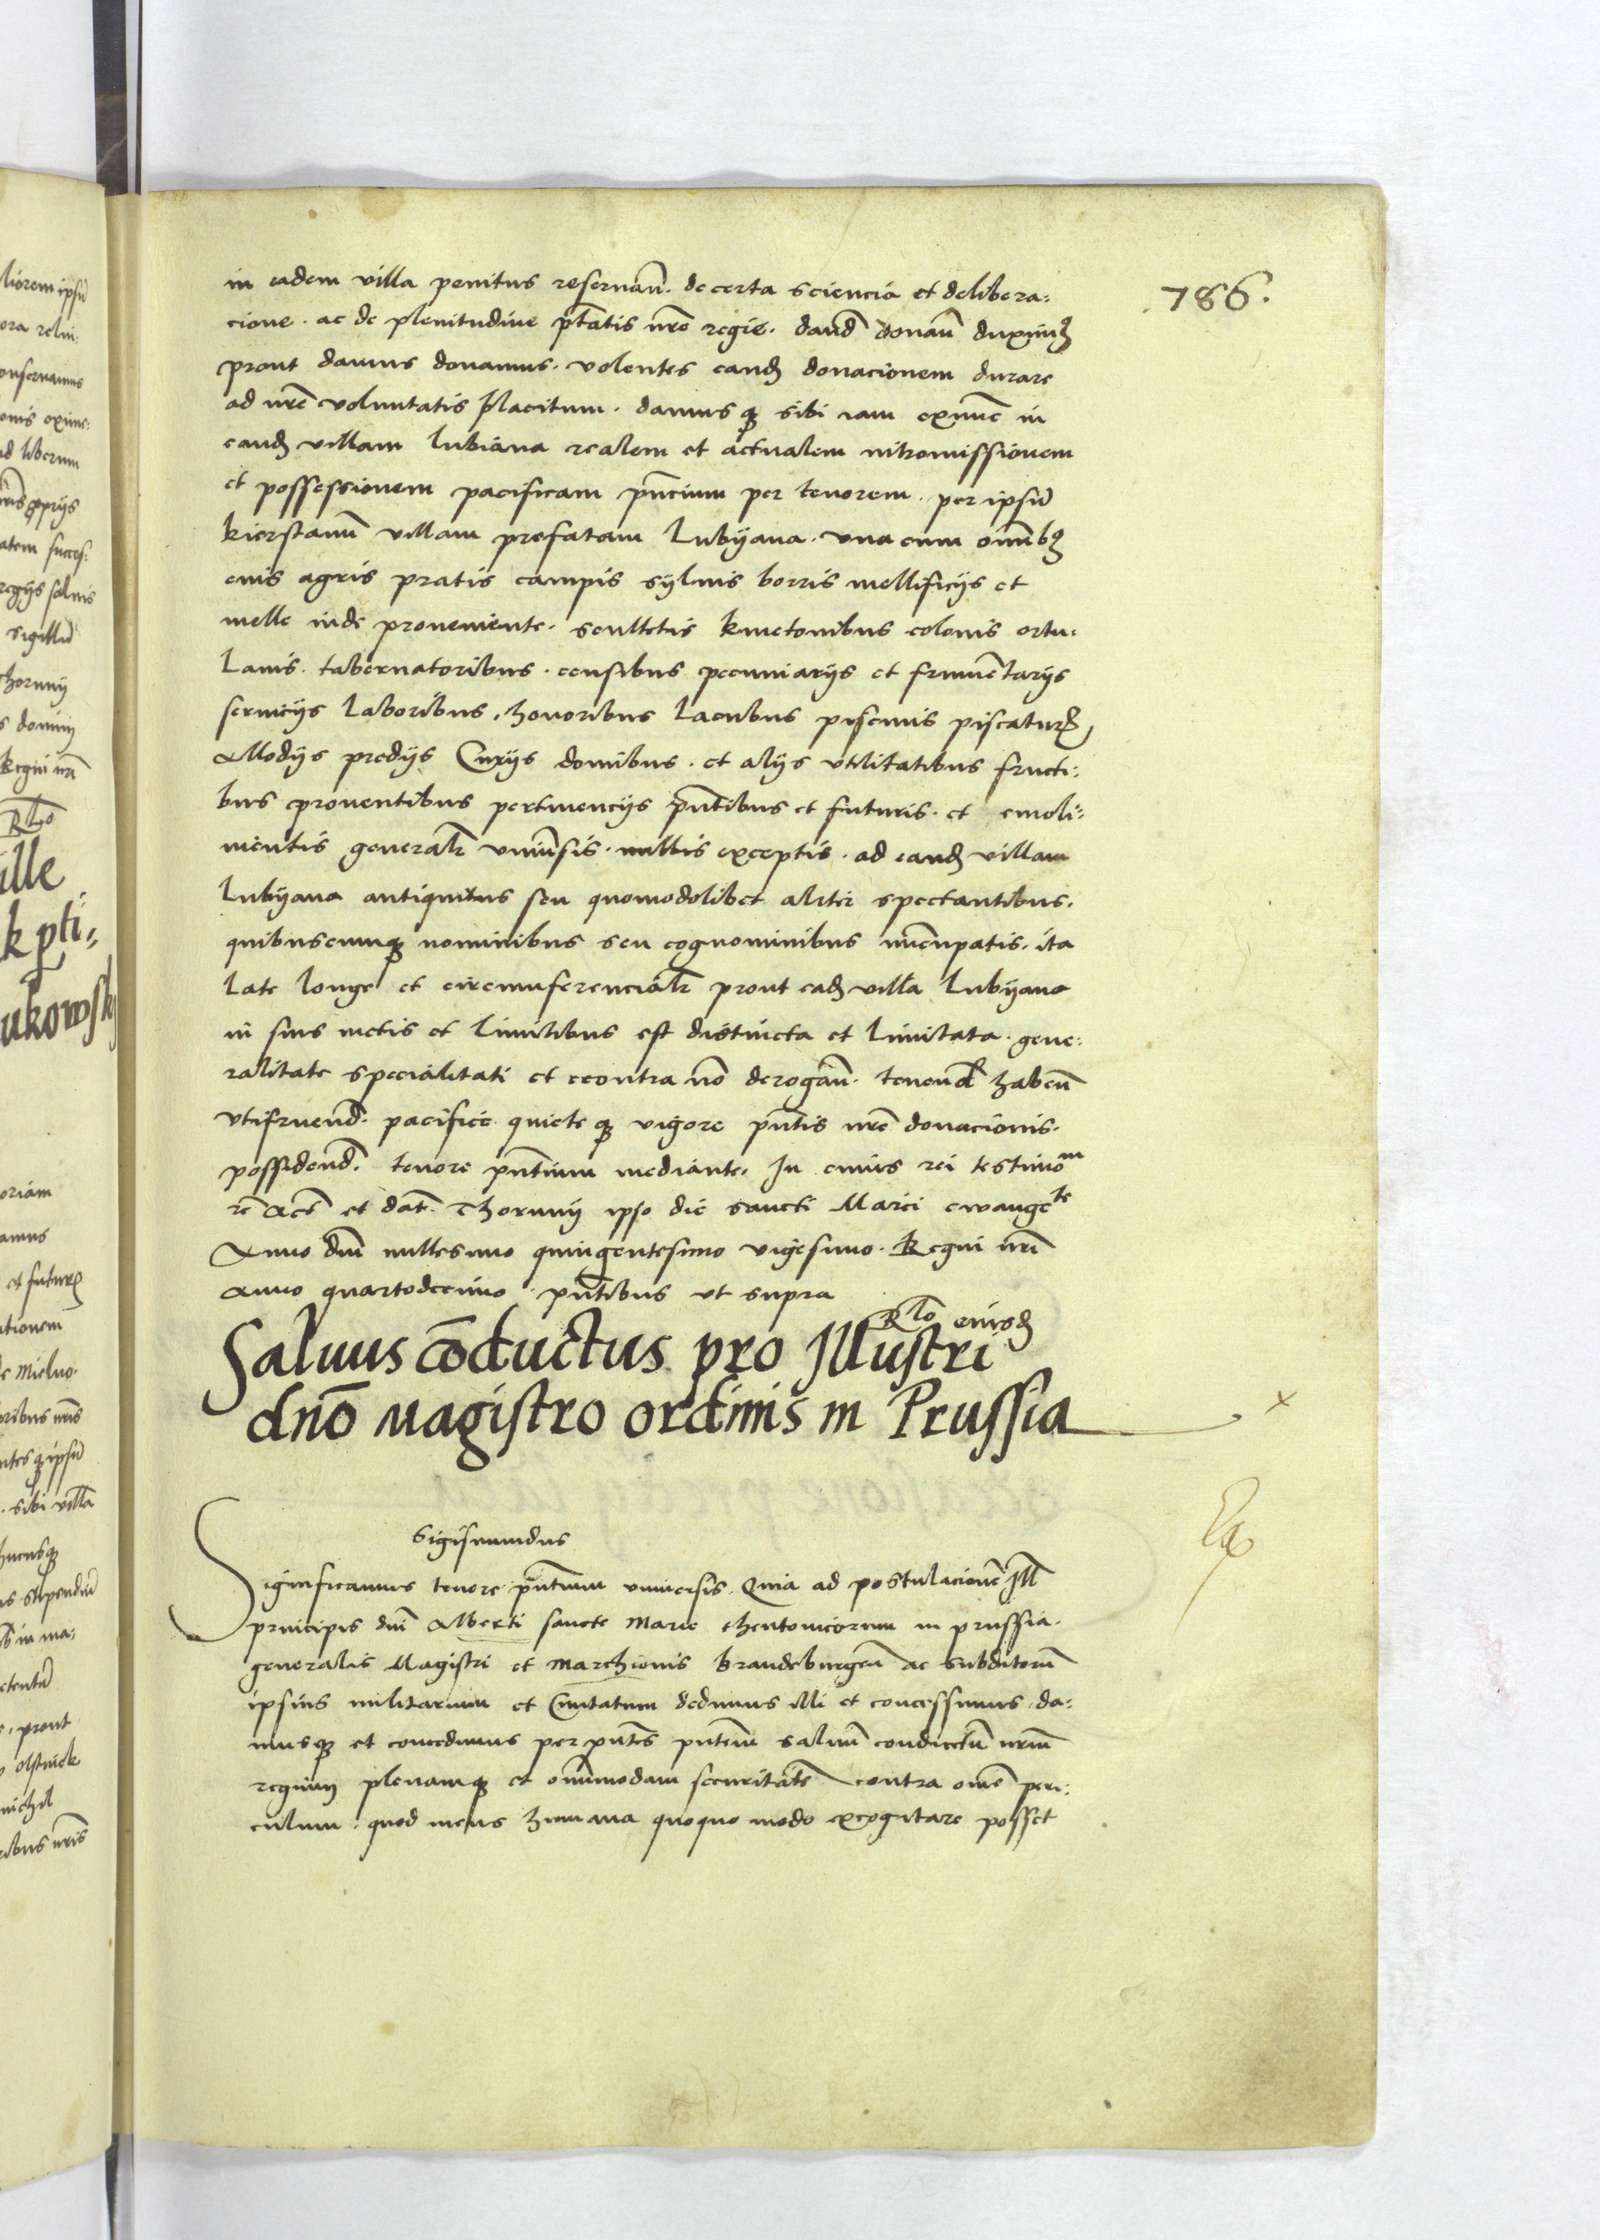 786.
in eadem villa penitus reseruan̄. de certa sciencia et delibera:
cione. ac de plenitudine ptatis nr̄e regie. dand̄ donan̄ duximus
prout damus donamus. volentes eand donacionem durare
ad nr̄e voluntatis placitum. damusq sibi iam exnunc in
eand villam lubiana realem et actualem intromissionem
et possessionem pacificam pn̄cium per tenorem. per ipsū
kierstanū villam prefatam Lubyana. vna cum omībꝫ
euis agris pratis campis syluis borris mellificÿs et
melle inde proueniente. scultetis kmetonibus colonis ortu:
lanis. tabernatoribus. censibus pecuniarÿs et frumētarÿs
seruicÿs laboribus, honoribus lacubus piscinis piscaturꝭ
Allodÿs predÿs Curÿs domibus. et alÿs vtilitatibus fructi:
bus prouentibus pertinencÿs pn̄tibus et futuris. et emoli:
mentis generalr̄ vniuersis. nullis exceptis. ad eand villam
Lubyana antiquitus seu quomodolibet aliter spectantibus.
quibuscumq nominibus seu cognominibus nūcupatis. ita
late longe et circumferencialr̄ prout ead villa Lubyana
in suis metis et limitibus est distincta et limitata. gene:
ralitate specialitati et econtra nō derogan̄. tenend̄ haben̄
vtifruend̄. pacifice quiete q vigore pn̄tis nr̄e donacionis.
possidend̄. tenore pn̄tium mediante. In cuius rei testimom
rē Act̄ et dat̄ Thorunÿ ipso die sancti Marci ewangete
Anno dn̄i millesimo quingentesimo vigesimo. Regni nr̄i
anno quartodecimo pn̄tibus ut supra
Rlo eiusd
Saluus cōductus pro Illustri
dn̄o Magistro ordinis in Prussia
x
Sigismundus
Significamus tenore pn̄tium vniuersis. Quia ad postulacionē Ill
principis dn̄i Alberti sancte Marie thentonicorum in prussia.
generalis Magistri et marchionis brandeburgen̄ ac subditorū
ipsius militarium et Ciuitatum dedimus illi et concessimus. da:
musq et concedimus per pn̄tes pn̄tiū saluū conductū nr̄um
regium plenamq et omīmodam securitatē contra omē peri:
culum. quod mens humana quoquo modo excogitare posset